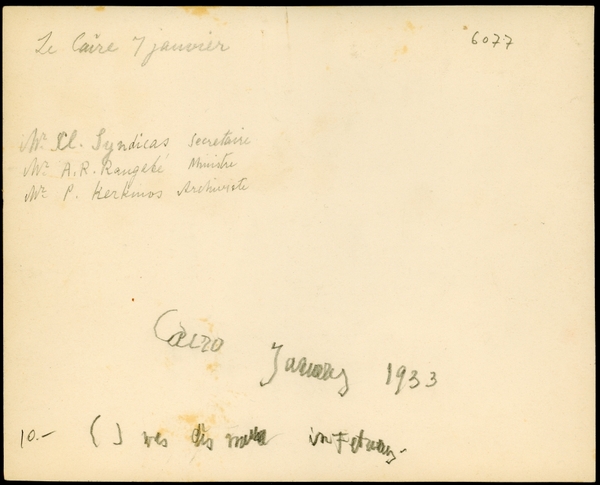 Le Caire 7 janvier
6077
Mr. Syndicas Secretaire
Mr. A. R. Rangabé Ministre
Mr. P. Kerkinos Archiviste
Cairo January 1933
10.- ( ) was in February.